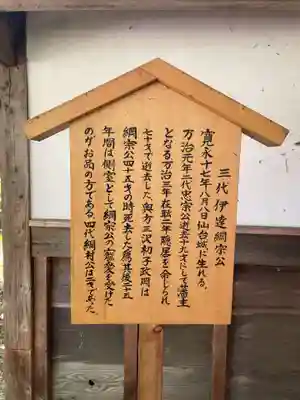 三代伊達綱宗公
寛永十七年八月八日仙台城に生れる。
万治元年二代忠宗公逝去十九才にして藩主
となる万治三年在職二年隠居を命じられ
七十才で逝去した奥方三沢初子政岡は
綱宗公四十五才の時死去した為其後二十五
年間は側室として綱宗公の寵愛を受けた
のがお品の方である。四代綱村公は二才であった。